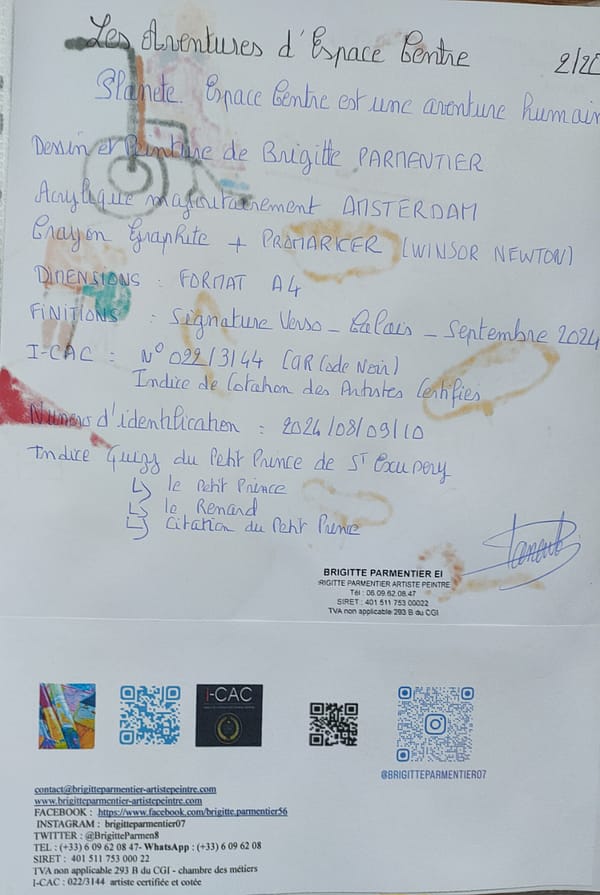 Les Aventures d'Espace Centre
2/20
Planete Espace Centre est une aventure humain
Dessin et Peinture de Brigitte PARMENTIER
Acrylique majoritairement AMSTERDAM
Crayon Graphite + PROMARKER (WINSOR NEWTON)
DIMENSIONS : FORMAT A4
FINITIONS : Signature Verso - Calais - Septembre 2024
I-CAC : N° 022/3144 (QR Code Noir)
Indice de Cotation des Artistes Certifiés
Numero d'identification : 2024/08/09/10
Indice Quizz du Petit Prince de ST Exupery
↳ le Petit Prince
↳ le Renard
↳ Citation du Petit Prince
BRIGITTE PARMENTIER EI
BRIGITTE PARMENTIER ARTISTE PEINTRE
Tél : 06.09.62.08.47
SIRET : 401 511 753 00022
TVA non applicable 293 B du CGI
I-CAC
@BRIGITTEPARMENTIER07
contact@brigitteparmentier-artistepeintre.com
www.brigitteparmentier-artistepeintre.com
FACEBOOK : https://www.facebook.com/brigitte.parmentier56
INSTAGRAM : brigitteparmentier07
TWITTER : @BrigitteParmen8
TEL : (+33) 6 09 62 08 47- WhatsApp : (+33) 6 09 62 08
SIRET : 401 511 753 000 22
TVA non applicable 293 B du CGI - chambre des métiers
I-CAC : 022/3144 artiste certifiée et cotée